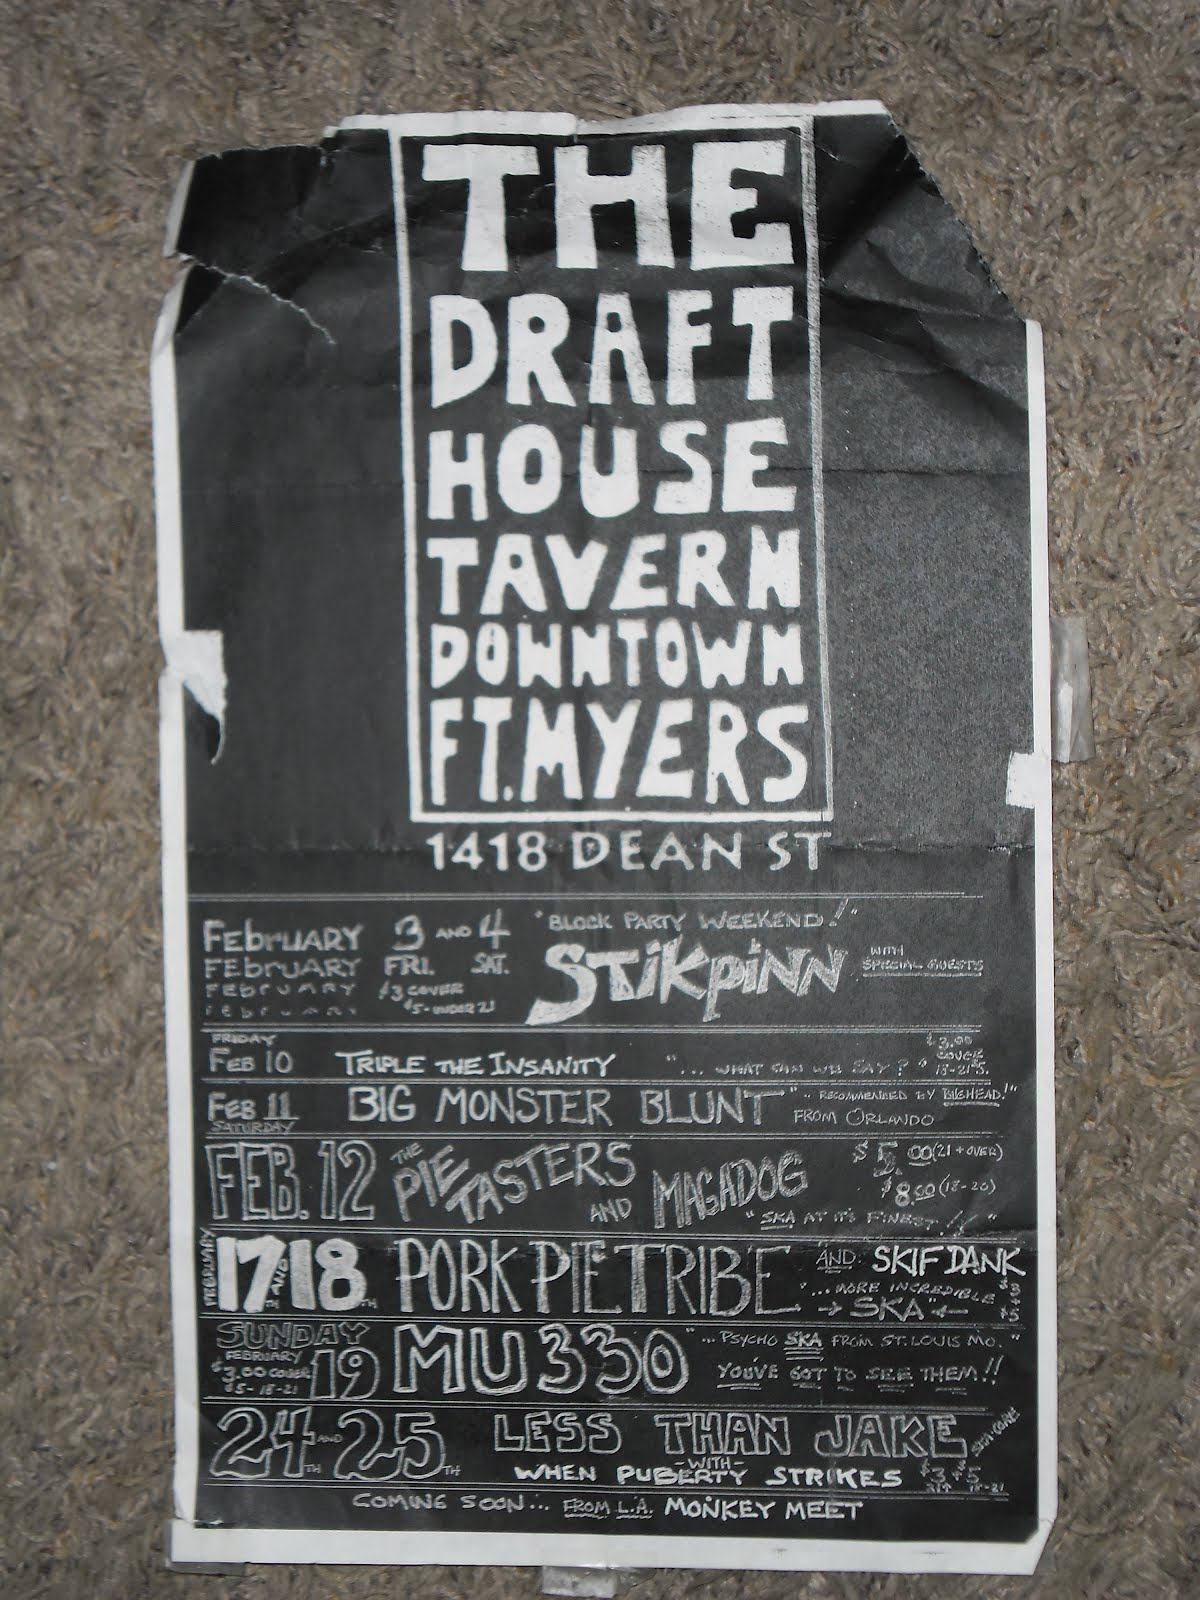 THE
DRAFT
HOUSE
TAVERN
DOWNTOWN
FT. MYERS
1418 DEAN ST
FEBRUARY 3 AND 4 "BLOCK PARTY WEEKEND!"
FEBRUARY FRI. SAT. STIKPINN WITH SPECIAL GUESTS
FEBRUARY $3 COVER
FEBRUARY $5-UNDER 21
FRIDAY
FEB 10 TRIPLE THE INSANITY "... WHAT CAN WE SAY?" $3.00 COVER 18-21 $5.
FEB 11 BIG MONSTER BLUNT ".. RECOMMENDED BY BIGHEAD!"
SATURDAY FROM ORLANDO
FEB. 12 THE PIE TASTERS AND MAGADOG $5.00 (21 + OVER)
$8.00 (18-20)
"SKA AT IT'S FINEST!!"
FEBRUARY 17TH AND 18TH PORK PIE TRIBE AND SKIF DANK
"...MORE INCREDIBLE $3
→ SKA ← $5
SUNDAY
FEBRUARY 19 MU330 "...PSYCHO SKA FROM ST. LOUIS MO."
$3.00 COVER YOU'VE GOT TO SEE THEM!!
$5- 18-21
24TH AND 25TH LESS THAN JAKE SKA-CORE
-WITH-
WHEN PUBERTY STRIKES $3 21+ $5 18-21
COMING SOON... FROM L.A. MONKEY MEET